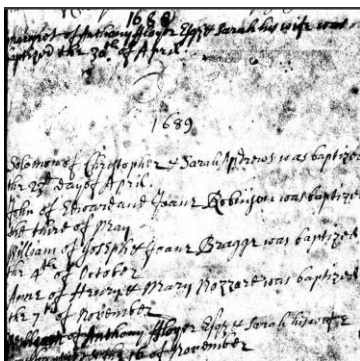 1688
of Anthony Floyer Esqr & Sarah his wife was
baptized the 30th of April
1689
Solomon of Christopher & Sarah Andrews was baptized
the 23d day of April.
John of Edward and Joane Robinson was baptized
the third of May
William of Joseph & Joane Bragge was baptized
the 4th of October
Anne of Henry & Mary was baptized
the 7th of November
William of Anthony Floyer Esqr & Sarah his wife
the 10 of November